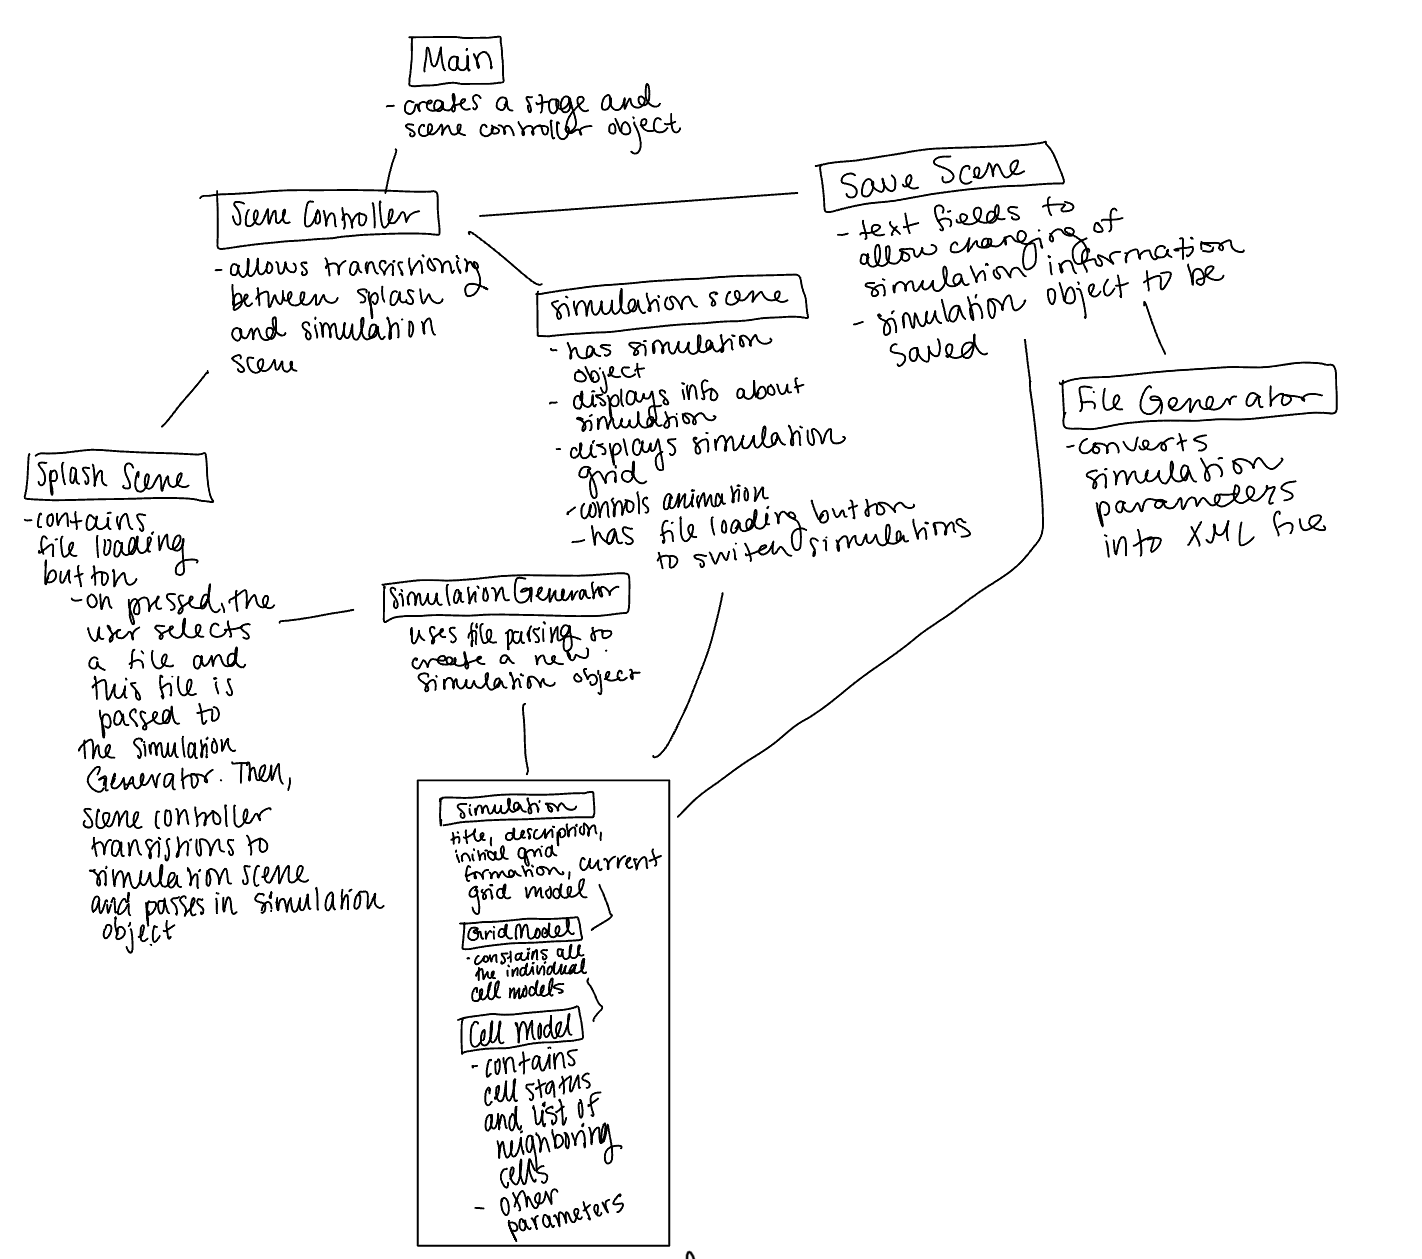 Main
- creates a stage and
scene controller object
Scene Controller
- allows transistioning
between splash
and simulation
scene
Save Scene
- text fields to
allow changing of
simulation information
- simulation object to be
saved
simulation scene
- has simulation
object
- displays info about
simulation
- displays simulation
grid
- controls animation
- has file loading button
to switch simulations
File Generator
- converts
simulation
parameters
into XML file
Splash Scene
- contains
file loading
button
- on pressed, the
user selects
a file and
this file is
passed to
the simulation
Generator. Then,
scene controller
transistions to
simulation scene
and passes in simulation
object
Simulation Generator
uses file parsing to
create a new
simulation object
simulation
title, description,
initial grid
formation, current
grid model
Grid Model
- constains all
the individual
cell models
Cell Model
- contains
cell status
and list of
neighboring
cells
- other
parameters